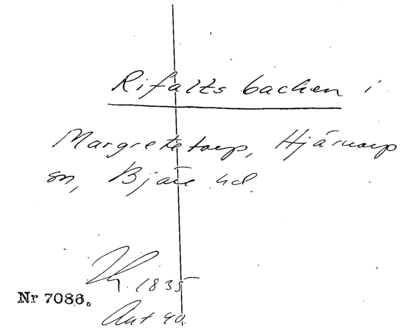 Rifalts backen i
Margretetorp, Hjärnarp
sn, Bjäre hd.
1835
Nr 7086.
Ant 40.